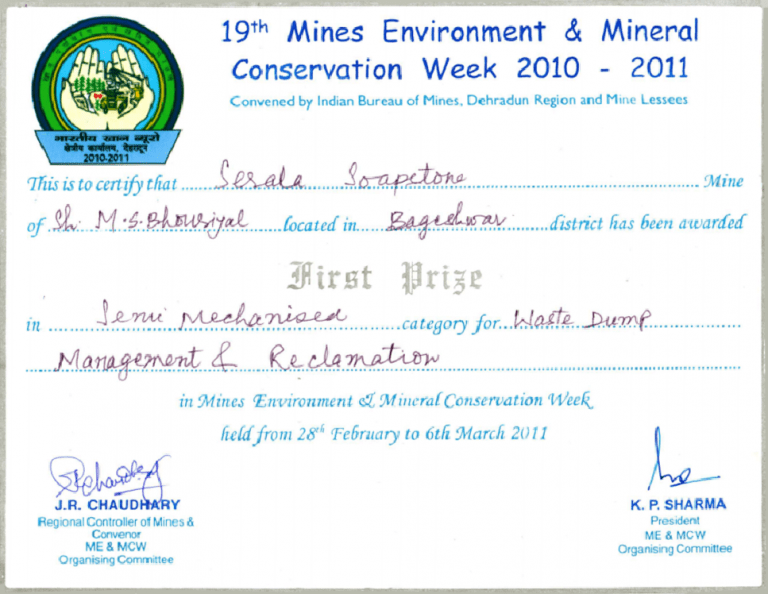 19th Mines Environment & Mineral
Conservation Week 2010 - 2011
Convened by Indian Bureau of Mines, Dehradun Region and Mine Lessees
भारतीय खान ब्यूरो
क्षेत्रीय कार्यालय, देहरादून
2010-2011
This is to certify that ......Serala Soapstone...... Mine
of Sh. M.S. Bhowriyal located in.....Bageshwar......district has been awarded
First Prize
in ......Semi Mechanised......category for..Waste Dump......
Management & Reclamation
in Mines Environment & Mineral Conservation Week
held from 28th February to 6th March 2011
J.R. CHAUDHARY
Regional Controller of Mines &
Convenor
ME & MCW
Organising Committee
K. P. SHARMA
President
ME & MCW
Organising Committee